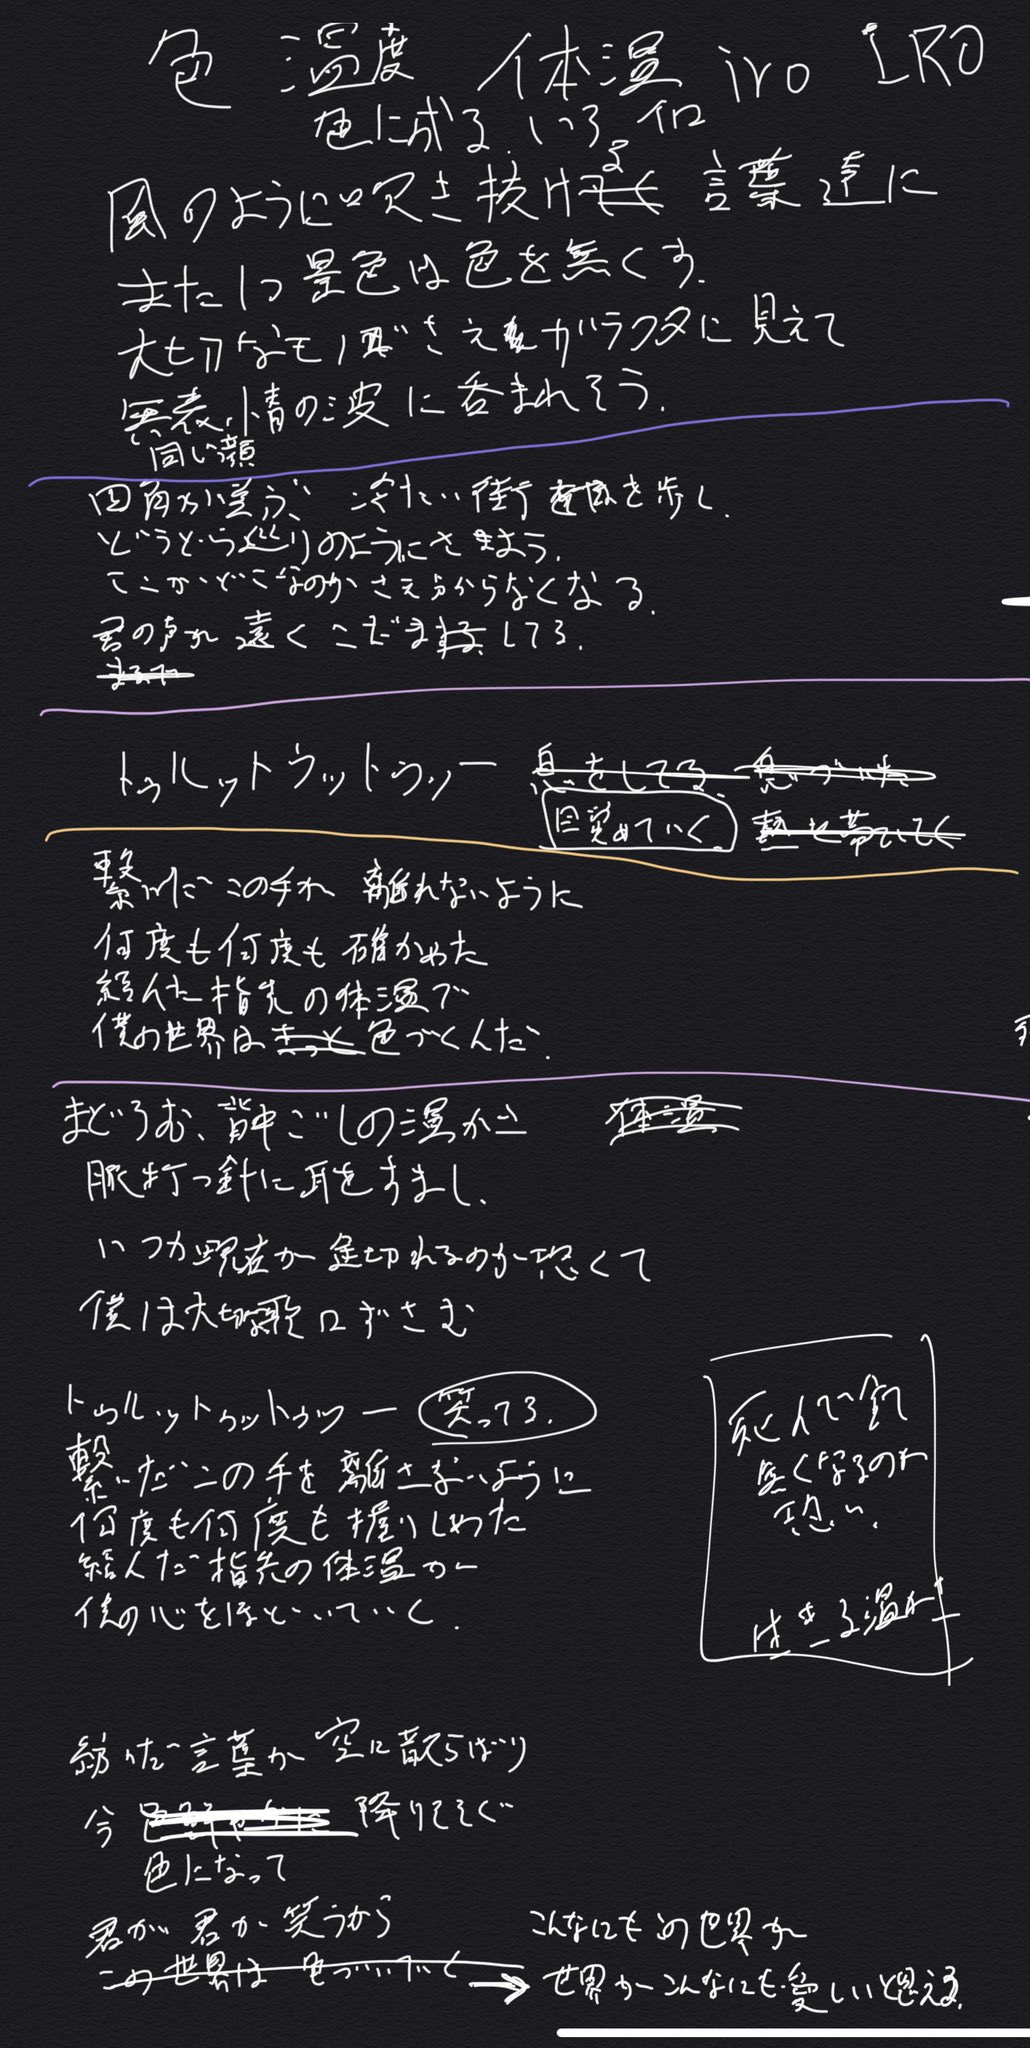 色 温度 体温 iro IRO
色に成る、いろ イロ
風のように吹き抜ける 言葉達に
また1つ景色は色を無くす。
大切なモノまでさえガラクタに見えて
無表情の波に呑まれそう。
同じ顔
四角が並ぶ、冷たい街を歩く。
どうどう巡りのようにさまよう。
ここがどこなのかさえ分からなくなる。
君の声が遠くこだましてる。
トゥルットゥットゥッー 息をしてる 息づいた
目覚めていく 熱を帯びていく
繋いだこの手が離れないように
何度も何度も確かめた
結んだ指先の体温で
僕の世界はきっと色づくんだ。
まどろむ、背中ごしの温かさ 体温
脈打つ針に耳をすまし、
いつか現在が途切れるのが恐くて
僕は大切な歌口ずさむ
トゥルットゥットゥッー 笑ってる。
繋いだこの手を離さないように
何度も何度も握りしめた
結んだ指先の体温が
僕の心をほどいていく。
死んで
無くなるのが
恐い。
生きる温かさ
紡いだ言葉が空に散らばり
今 降りてそぐ
色になって
君が君が笑うから こんなにもこの世界が
この世界は色づいていく → 世界がこんなにも愛しいと思える。